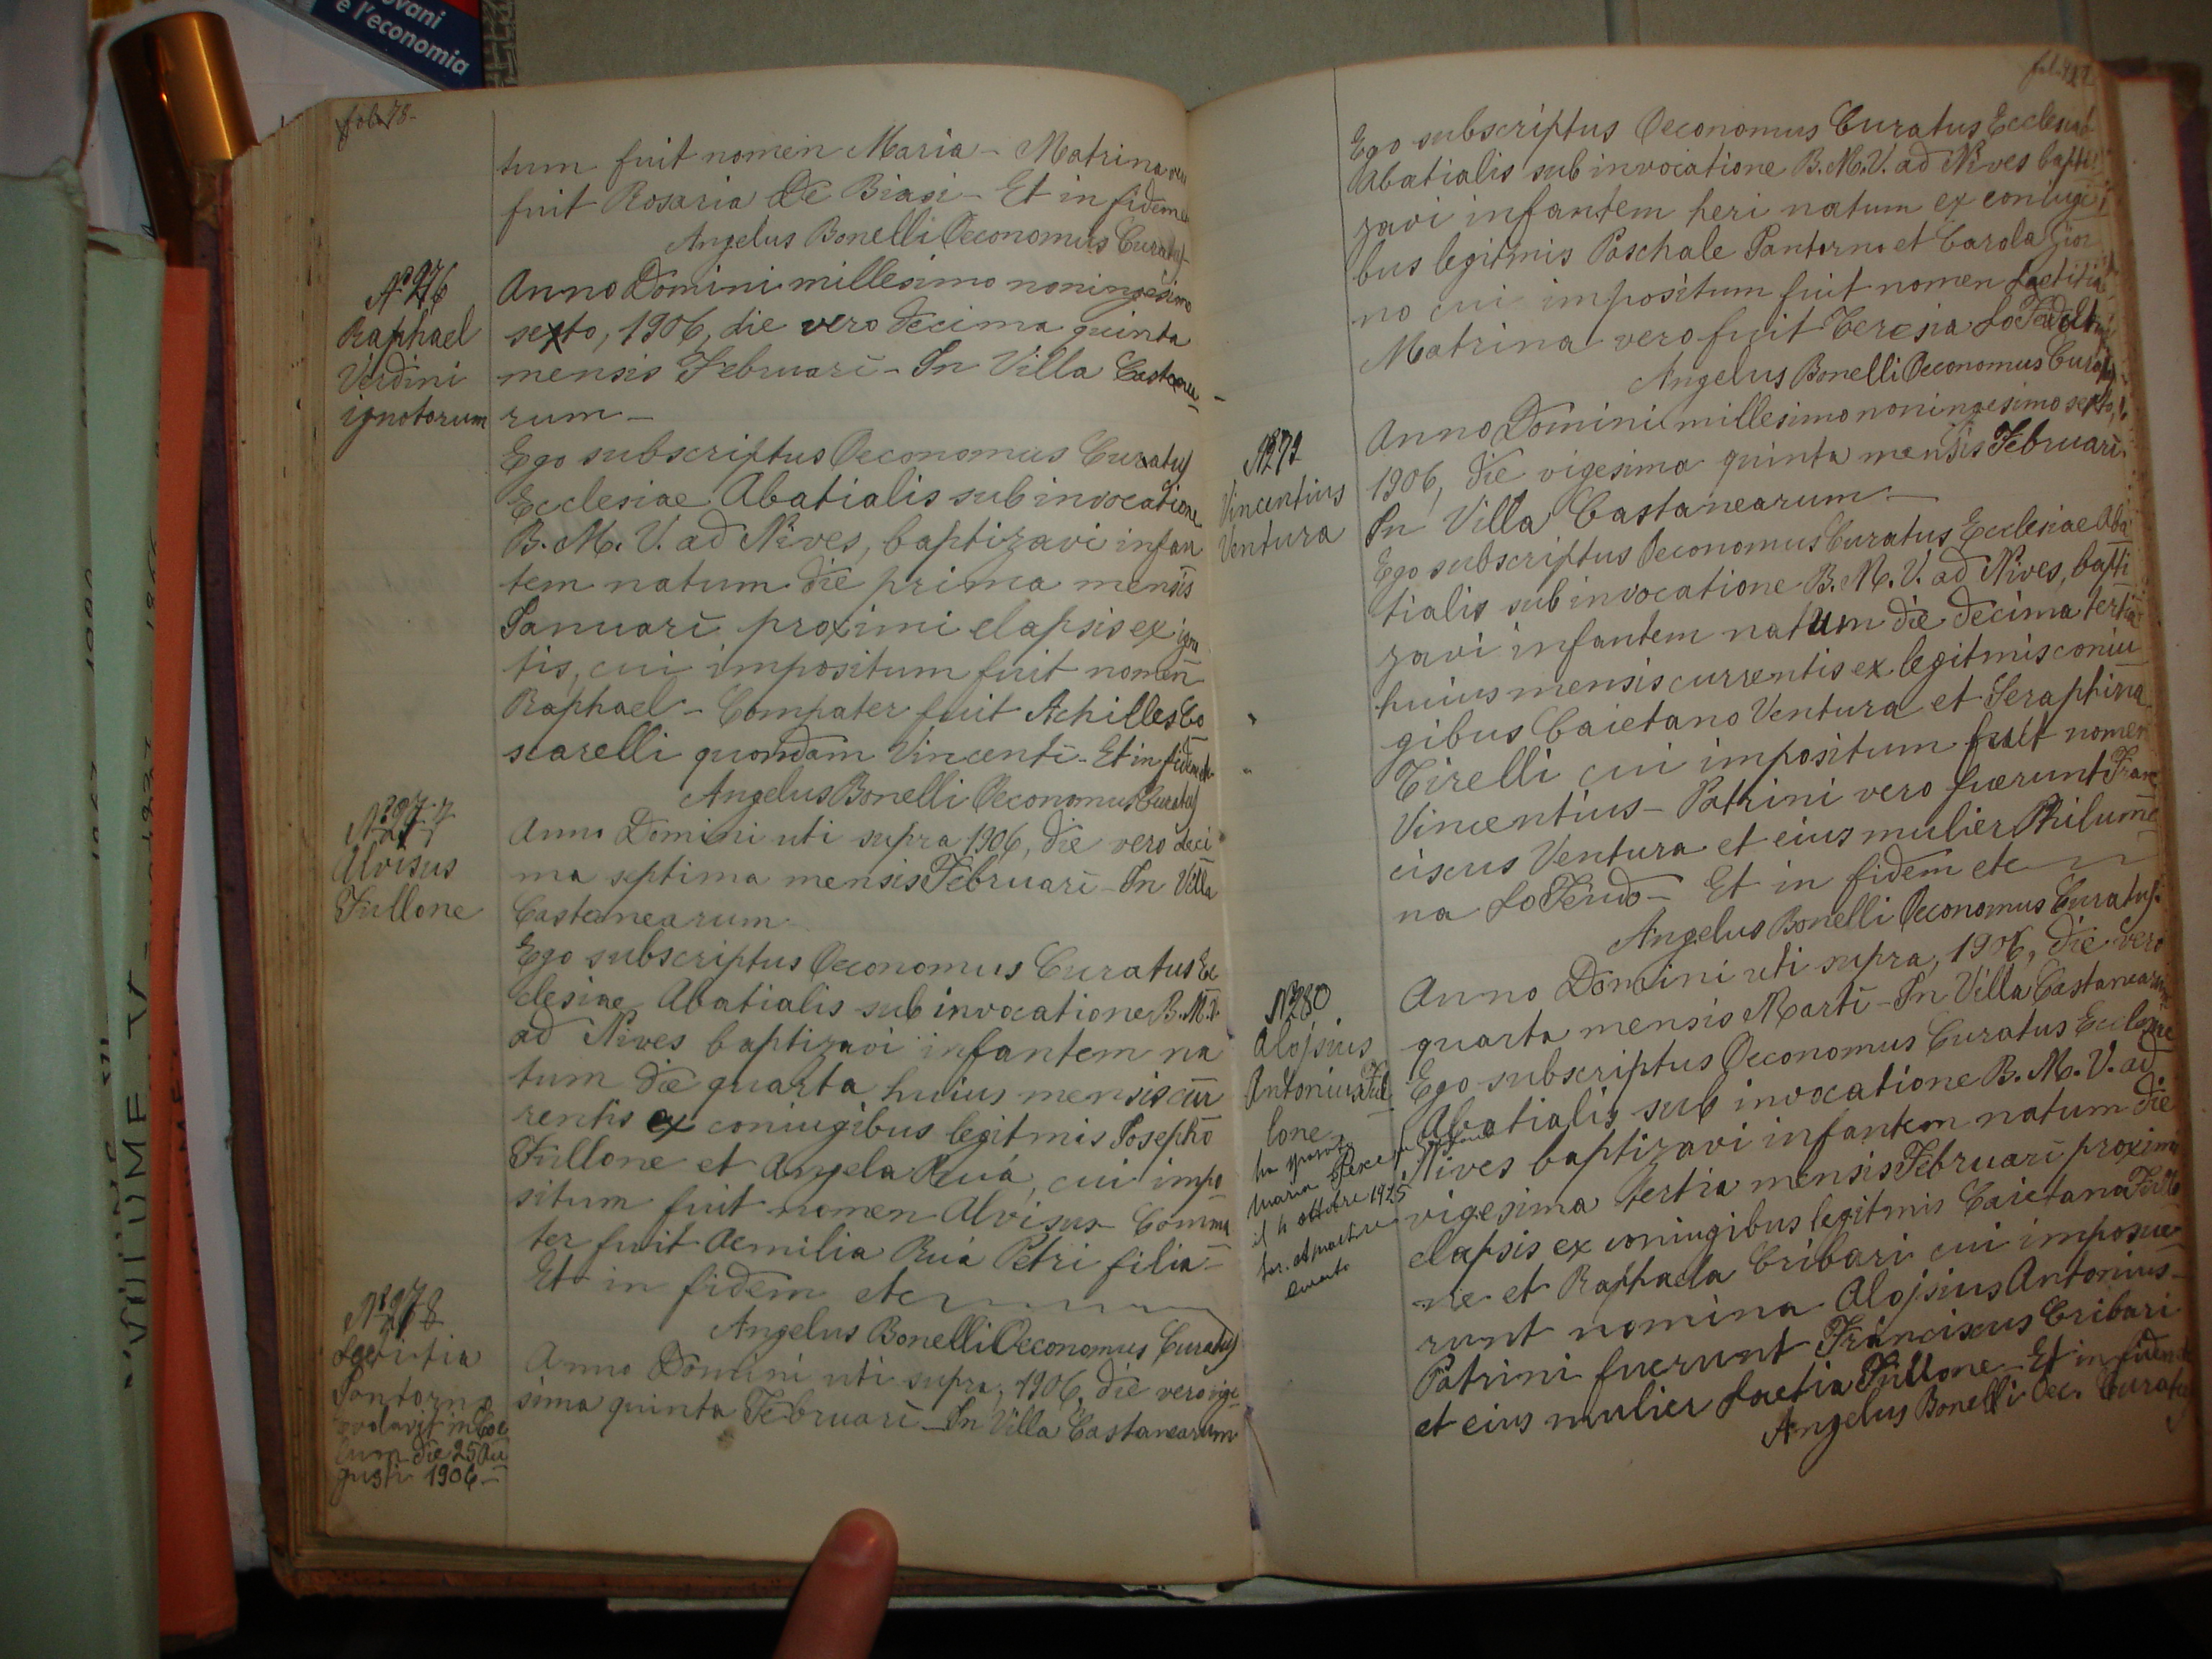 ovani
e l'economia
fol. 78-
tum fuit nomen Maria - Matrina
fuit Rosaria De Biasi - Et in fidem
Angelus Bonelli Oeconomus Curatus
Nº 276
Raphael
Verdini
ignotorum
Anno Domini millesimo noningesimo
sexto, 1906, die vero decima quinta
mensis Februari - In Villa Castanea
rum -
Ego subscriptus Oeconomus Curatus
Ecclesiae Abatialis sub invocatione
B. M. V. ad Nives, baptizavi infan
tem natum die prima mensis
Januari proximi elapsis ex igno
tis, cui impositum fuit nomen
Raphael - Compater fuit Achilles Co
scarelli quondam Vincenti - Et in fidem etc
Angelus Bonelli Oeconomus Curatus
Nº 277
Alvisus
Fullone
Anno Domini uti supra 1906, die vero deci
ma septima mensis Februari - In Villa
Castanearum
Ego subscriptus Oeconomus Curatus Ec
clesiae Abatialis sub invocatione B. M. V.
ad Nives baptizavi infantem na
tum die quarta huius mensis cur
rentis ex coniugibus legitmis Josepho
Fullone et Angela Ruá, cui impo
situm fuit nomen Alvisus - Comma
ter fuit Aemilia Ruá Petri filia -
Et in fidem etc
Angelus Bonelli Oeconomus Curatus
Nº 278
Laetitia
Pantorno
evolavit in Coe
lum die 25 Au
gusti 1906 -
Anno Domini uti supra, 1906, die vero vige
sima quinta Februari - In Villa Castanearum
Ego subscriptus Oeconomus Curatus Ecclesiae
Abatialis sub invocatione B. M. V. ad Nives bapti
zavi infantem heri natum ex coniugi
bus legitmis Paschale Pantorno et Carola Gior
no cui impositum fuit nomen Laetitia
Matrina vero fuit Teresia Lo
Angelus Bonelli Oeconomus Curatus
Nº 279
Vincentius
Ventura
Anno Domini millesimo noningesimo sexto,
1906, die vigesima quinta mensis Februari
In Villa Castanearum -
Ego subscriptus Oeconomus Curatus Ecclesiae Aba
tialis sub invocatione B. M. V. ad Nives, bapti
zavi infantem natum die decima tertia
huius mensis currentis ex legitmis coniu
gibus Caietano Ventura et Seraphina
Tirelli cui impositum fuit nomen
Vincentius - Patrini vero fuerunt Fran
ciscus Ventura et eius mulier Philume
na Lo Feudo - Et in fidem etc
Angelus Bonelli Oeconomus Curatus
Nº 280
Alojsius
Antonius Ful
lone
ha sposato
Maria
il 4 ottobre 1925
curato
Anno Domini uti supra, 1906, die vero
quarta mensis Marti - In Villa Castanearum
Ego subscriptus Oeconomus Curatus Ecclesiae
Abatialis sub invocatione B. M. V. ad
Nives baptizavi infantem natum die
vigesima tertia mensis Februari proximi
elapsis ex coniugibus legitmis Caietana Fullo
ne et Raphaela Cribari cui imposue
runt nomina Alojsius Antonius -
Patrini fuerunt Franciscus Cribari
et eius mulier Laetia Fullone - Et in fidem etc
Angelus Bonelli Oec. Curatus